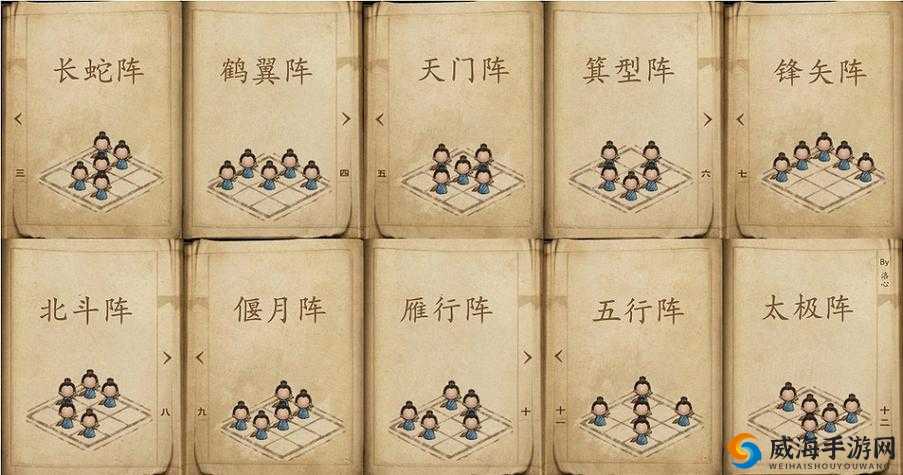 长蛇阵
鹤翼阵
天门阵
箕型阵
锋矢阵
三
四
五
六
七
北斗阵
偃月阵
雁行阵
五行阵
太极阵
By
洛心
八
九
十
十一
十二
威海手游网
WEIHAISHOUYOUWANG